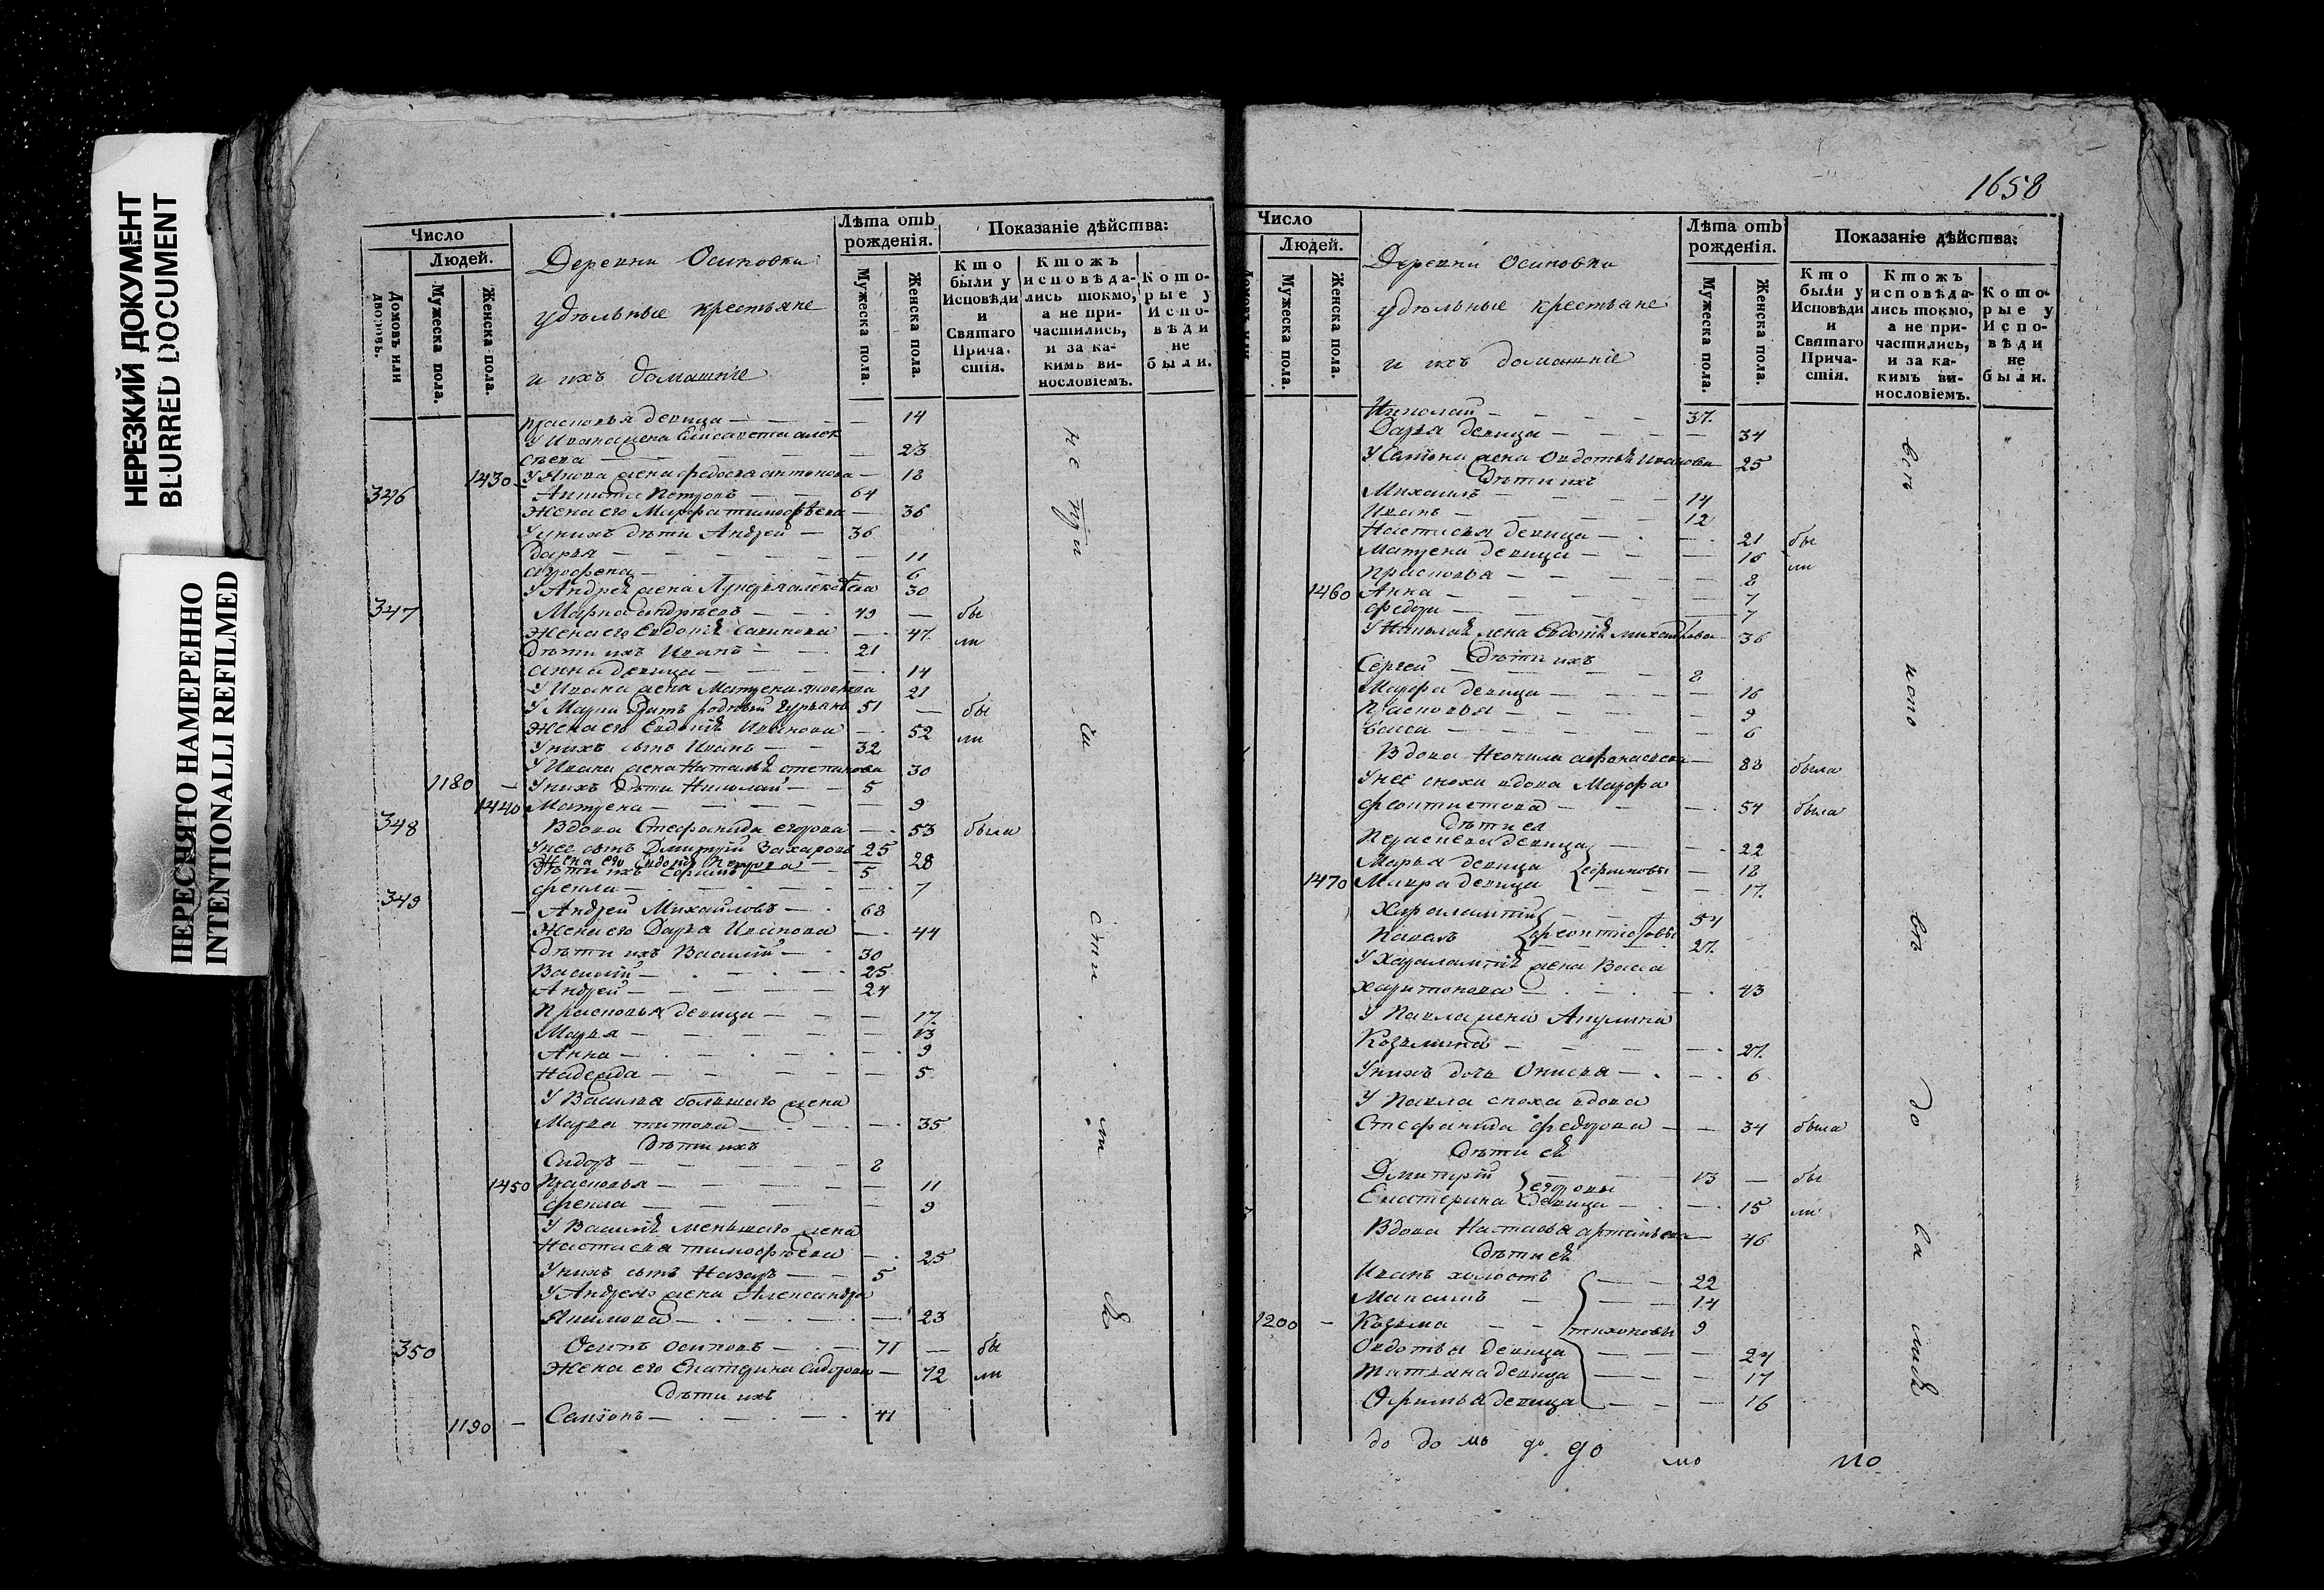 НЕРЕЗКИЙ ДОКУМЕНТ
BLURRED DOCUMENT
ПЕРЕСНЯТО НАМЕРЕННО
INTENTIONALLI REFILMED
Число
Людей.
Домовъ или дворовъ.
Мужеска пола.
Женска пола.
Деревни Осиновки
удѣльные крестьяне
и ихъ домашніе
Лѣта отъ рожденія.
Мужеска пола.
Женска пола.
Показаніе дѣйства:
Кто были у Исповѣди и Святаго Причастія.
Ктожъ исповѣдались токмо, а не причастились, и за какимъ винословіемъ.
Которые у Исповѣди не были.
Прасковья девица — — 14
У Ивана жена Елисавета алек
сѣева — — 23
1430 — У Якова жена федосья антонова — 18
346 Никита Петровъ — — 64
Жена его Марфа тимофѣева — 36
У нихъ дѣти Андрей — 36
Дарья — — 11
— 6
У Андрея жена — 30
347 Марка андрѣевъ — — 49 — бы
Жена его Евдокія савинова — 47 ли
Дѣти ихъ Иванъ — — 21
анна девица — — 14
У Ивана жена Матрена — 21
У Марки братъ родный Гурьянъ 51 — бы
Жена его Евдокія Иванова — 52 ли
У нихъ сынъ Иванъ — — 32
У Ивана жена Наталья степанова 30
1180 — У нихъ дѣти Николай — — 5
1440 Матрена — — 9
348 Вдова Стефанида егорова — 53 была
У нее сынъ Дмитрій Захаровъ 25
Жена его Евдокія Петрова — 28
Дѣти ихъ Ефимъ — 5
фекла — — 7
349 — Андрей Михайловъ — 68
Жена его Дарья Иванова — 44
Дѣти ихъ Василій — 30
Василій — — 25
Андрей — — 24
Прасковья девица — — 17
Марья — — 13
Анна — — 9
Надежда — — 5
У Василья большаго жена
Марья титова — — 35
Дѣти ихъ
Сидоръ — — 8
1450 Прасковья — — 11
фекла — — 9
У Василія меньшаго жена
Настасья тимофѣева — 25
У нихъ сынъ Назаръ — — 5
У Андрея жена Александра
Якимова — — 23
350 Осипъ Осиповъ — 71 — бы
Жена его Екатерина Сидорова — 72 ли
Дѣти ихъ
1190 — Самсонъ — — 41
не при ча сти ли ся
1658
Число
Людей.
Мужеска пола.
Женска пола.
Деревни Осиновки
удѣльные крестьяне
и ихъ домашніе
Лѣта отъ рожденія.
Мужеска пола.
Женска пола.
Показаніе дѣйства:
Кто были у Исповѣди и Святаго Причастія.
Ктожъ исповѣдались токмо, а не причастились, и за какимъ винословіемъ.
Которые у Исповѣди не были.
Николай — — 37
Дарья девица — — 34
У Самсона жена Овдотья Иванова 25
Дѣти ихъ
Михаилъ — — 14
Иванъ — — 12
Настасья девица — — 21 бы
Матрена девица — — 16 ли
Прасковья — — 8
1460 Анна — — 7
федора — — 7
У Николая жена Евдокія михайлова 36
Дѣти ихъ
Сергей — — 8
Марфа девица — — 16
Прасковья — — 9
Васса — — 6
Вдова Неонила афанасьева — 88 была
У нее сноха вдова Марфа
феоктистова — — 54 была
Дѣти ея
девица — 22
Марья девица — 18
1470 Мавра девица — 17
Харалампій — 54
Павелъ феоктистовы 27
У Харалампія жена Васса
харитонова — — 43
У Павла жена Акулина
Козьмина — — 27
У нихъ дочь Онисья — — 6
У Павла сноха вдова
Стефанида федорова — — 34 была
Дѣти ея
Дмитрій егоровы 13 — бы
Екатерина девица — 15 ли
Вдова Настасья артемьева — 46
Дѣти ея
Иванъ холостъ — — 22
Максимъ — — 14
1200 — Козьма — — тихоновы 9
Овдотья девица — — 24
Татьяна девица — — 17
Офимья девица — — 16
всѣ испо вѣ до ва лися
до до мъ до до мо мо